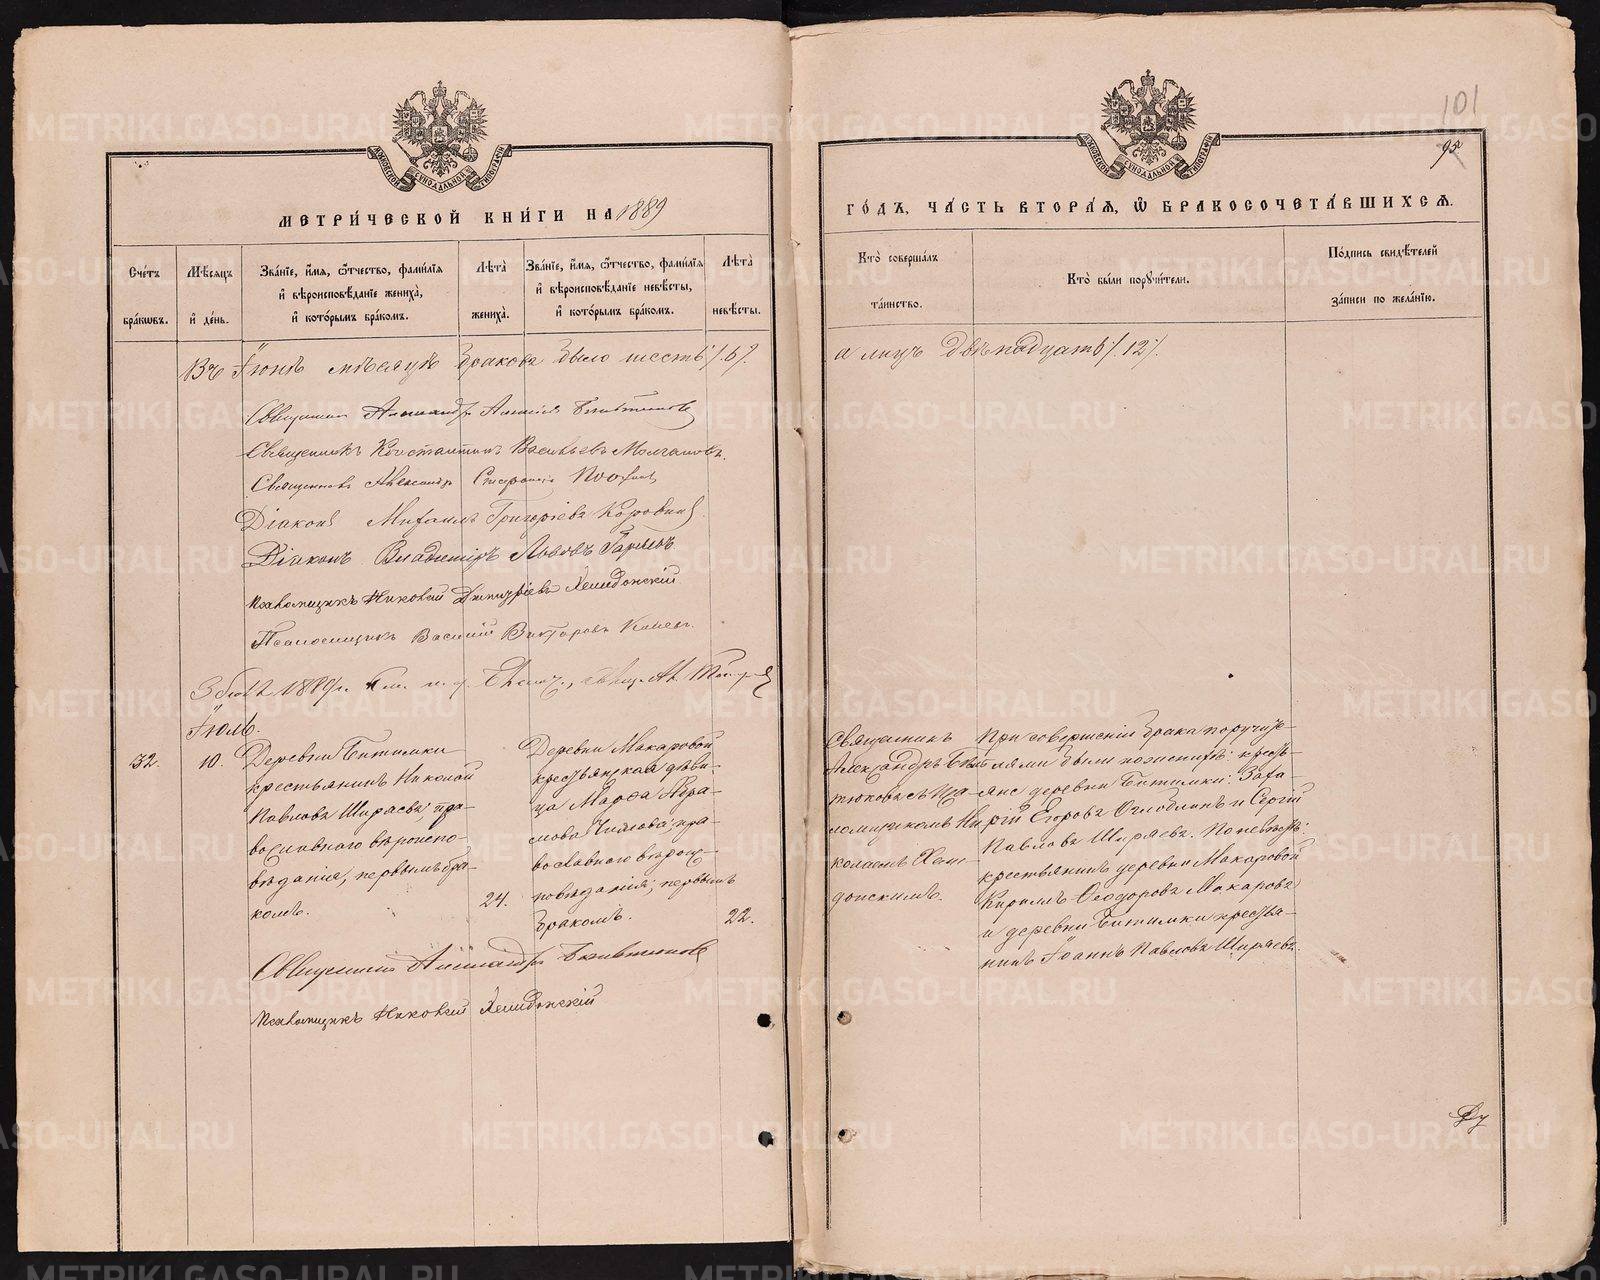 101
95
МОСКОВСКОЙ СѴНОДАЛЬНОЙ ТИПОГРАФІИ
МОСКОВСКОЙ СѴНОДАЛЬНОЙ ТИПОГРАФІИ
МЕТРИ́ЧЕСКОЙ КНИ́ГИ НА 1889
ГО́ДЪ, ЧА́СТЬ ВТОРА́Я, Ѡ҆ БРАКОСОЧЕТА́ВШИХСЯ.
Сче́тъ бра́кѡвъ.
Мѣ́сяцъ и҆ де́нь.
Зва́нїе, и҆́мя, ѻ҆́тчество, фами́лїя
и҆ вѣроисповѣ́данїе жениха̀,
и҆ кото́рымъ бра́комъ.
Лѣ́та жениха̀.
Зва́нїе, и҆́мя, ѻ҆́тчество, фами́лїя
и҆ вѣроисповѣ́данїе невѣ́сты,
и҆ кото́рымъ бра́комъ.
Лѣ́та невѣ́сты.
Кто̀ соверша́лъ
та́инство.
Кто̀ бы́ли порꙋчи́тели.
По́дпись свидѣ́телей
за́писи по жела́нїю.
Въ Іюнѣ мѣсяцѣ браковъ было шесть /.6./
а лицъ двѣнадцать /.12./.
Священникъ Александръ
Священникъ Константинъ Васильевъ Молчановъ.
Священникъ Александръ
Діаконъ Михаилъ Григоріевъ Коровинъ.
Діаконъ Владиміръ Львовъ
Псаломщикъ Николай Димитріевъ Хелидонскій
Псаломщикъ Василій Викторовъ
1889 г.
Іюль.
32.
10.
Деревни Битимки
крестьянинъ Николай
Павловъ Ширяевъ, пра-
вославнаго вѣроиспо-
вѣданія, первымъ бра-
комъ.
24.
Деревни Макаровой
крестьянская дѣви-
ца Марѳа Авра-
мова Чижова, пра-
вославнаго вѣроис-
повѣданія, первымъ
бракомъ.
22.
Священникъ
Александръ Бѣть-
тюковъ съ Пса-
ломщикомъ Ни-
колаемъ Хели-
донскимъ.
При совершеніи брака поручите-
лями были по женихѣ: кресть-
яне деревни Битимки: Заха-
рій Егоровъ Оглоблинъ и Сергій
Павловъ Ширяевъ. По невѣстѣ:
крестьянинъ деревни Макаровой
Кириллъ Ѳеодоровъ Макаровъ
и деревни Битимки крестья-
нинъ Іоаннъ Павловъ Ширяевъ.
Священникъ Александръ
Псаломщикъ Николай Хелидонскій
METRIKI.GASO-URAL.RU